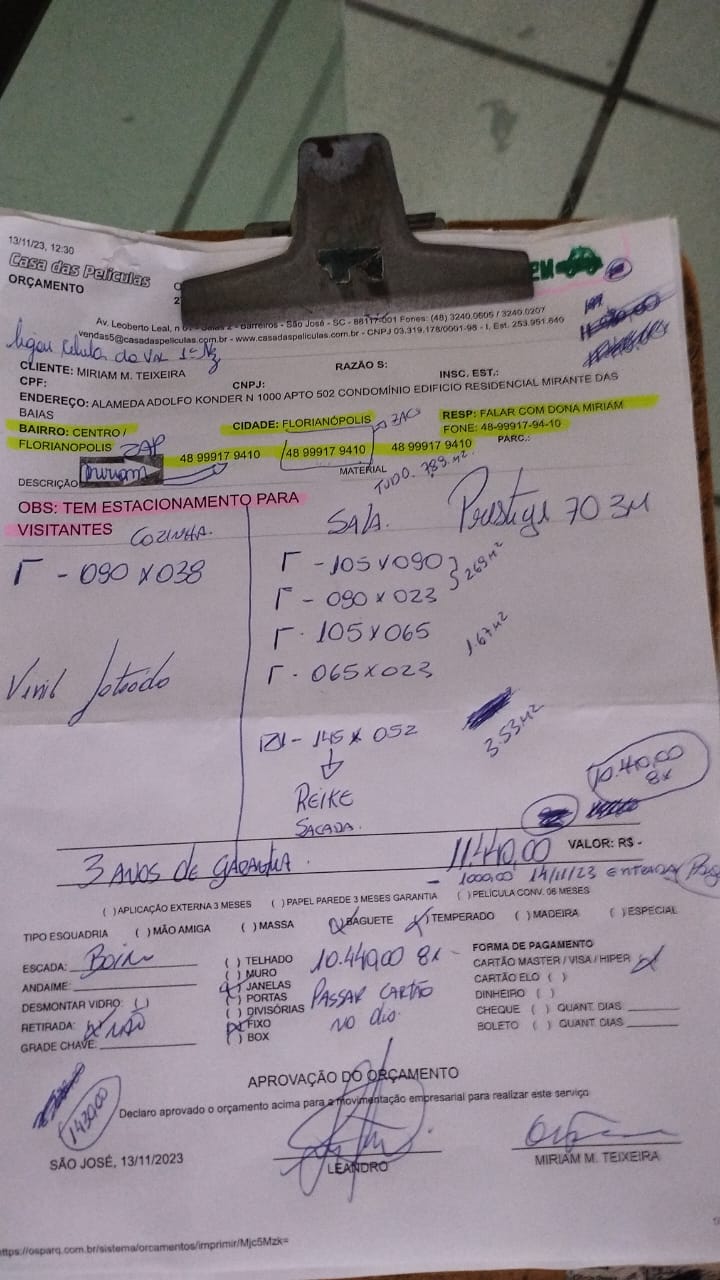 13/11/23, 12:30
Casa das Películas
ORÇAMENTO
Av. Leoberto Leal, n - Barreiros - São José - SC - 88117-001 Fones: (48) 3240.0605 / 3240.0207
vendas5@casadaspeliculas.com.br - www.casadaspeliculas.com.br - CNPJ 03.319.178/0001-98 - I. Est. 253.951.640
ligou celular do
CLIENTE: MIRIAM M. TEIXEIRA
RAZÃO S:
CPF:
CNPJ:
INSC. EST.:
ENDEREÇO: ALAMEDA ADOLFO KONDER N 1000 APTO 502 CONDOMÍNIO EDIFICIO RESIDENCIAL MIRANTE DAS
BAIAS
BAIRRO: CENTRO /
FLORIANOPOLIS
CIDADE: FLORIANÓPOLIS
RESP: FALAR COM DONA MIRIAM
FONE: 48-99917-94-10
ZAP
48 99917 9410
48 99917 9410
48 99917 9410
PARC.:
DESCRIÇÃO
miriam
MATERIAL
TUDO. 7.89 m²
OBS: TEM ESTACIONAMENTO PARA
VISITANTES
COZINHA.
SALA.
Prestige 70 3M
Γ - 090 x 038
Γ - 105 x 090
2.69 m²
Γ - 090 x 023
Γ - 105 x 065
1.67 m²
Γ - 065 x 023
Vinil Jateado
145 x 052
3.53 m²
REIKE
SACADA.
10.440,00
8x
3 ANOS DE GARANTIA.
11.440,00
VALOR: R$ -
- 1000,00 14/11/23 ENTRADA
( ) APLICAÇÃO EXTERNA 3 MESES ( ) PAPEL PAREDE 3 MESES GARANTIA ( ) PELÍCULA CONV. 06 MESES
TIPO ESQUADRIA ( ) MÃO AMIGA ( ) MASSA (X) BAGUETE (X) TEMPERADO ( ) MADEIRA ( ) ESPECIAL
ESCADA:
ANDAIME:
DESMONTAR VIDRO: ( )
RETIRADA: (X) NÃO
GRADE CHAVE:
( ) TELHADO
( ) MURO
(X) JANELAS
( ) PORTAS
( ) DIVISÓRIAS
(X) FIXO
( ) BOX
10.440,00 8x
PASSAR CARTÃO
NO dia.
FORMA DE PAGAMENTO
CARTÃO MASTER / VISA / HIPER (X)
CARTÃO ELO ( )
DINHEIRO ( )
CHEQUE ( ) QUANT. DIAS.
BOLETO ( ) QUANT. DIAS
APROVAÇÃO DO ORÇAMENTO
Declaro aprovado o orçamento acima para a movimentação empresarial para realizar este serviço
1430,00
SÃO JOSÉ, 13/11/2023
LEANDRO
MIRIAM M. TEIXEIRA
https://osparq.com.br/sistema/orcamentos/imprimir/Mjc5Mzk=